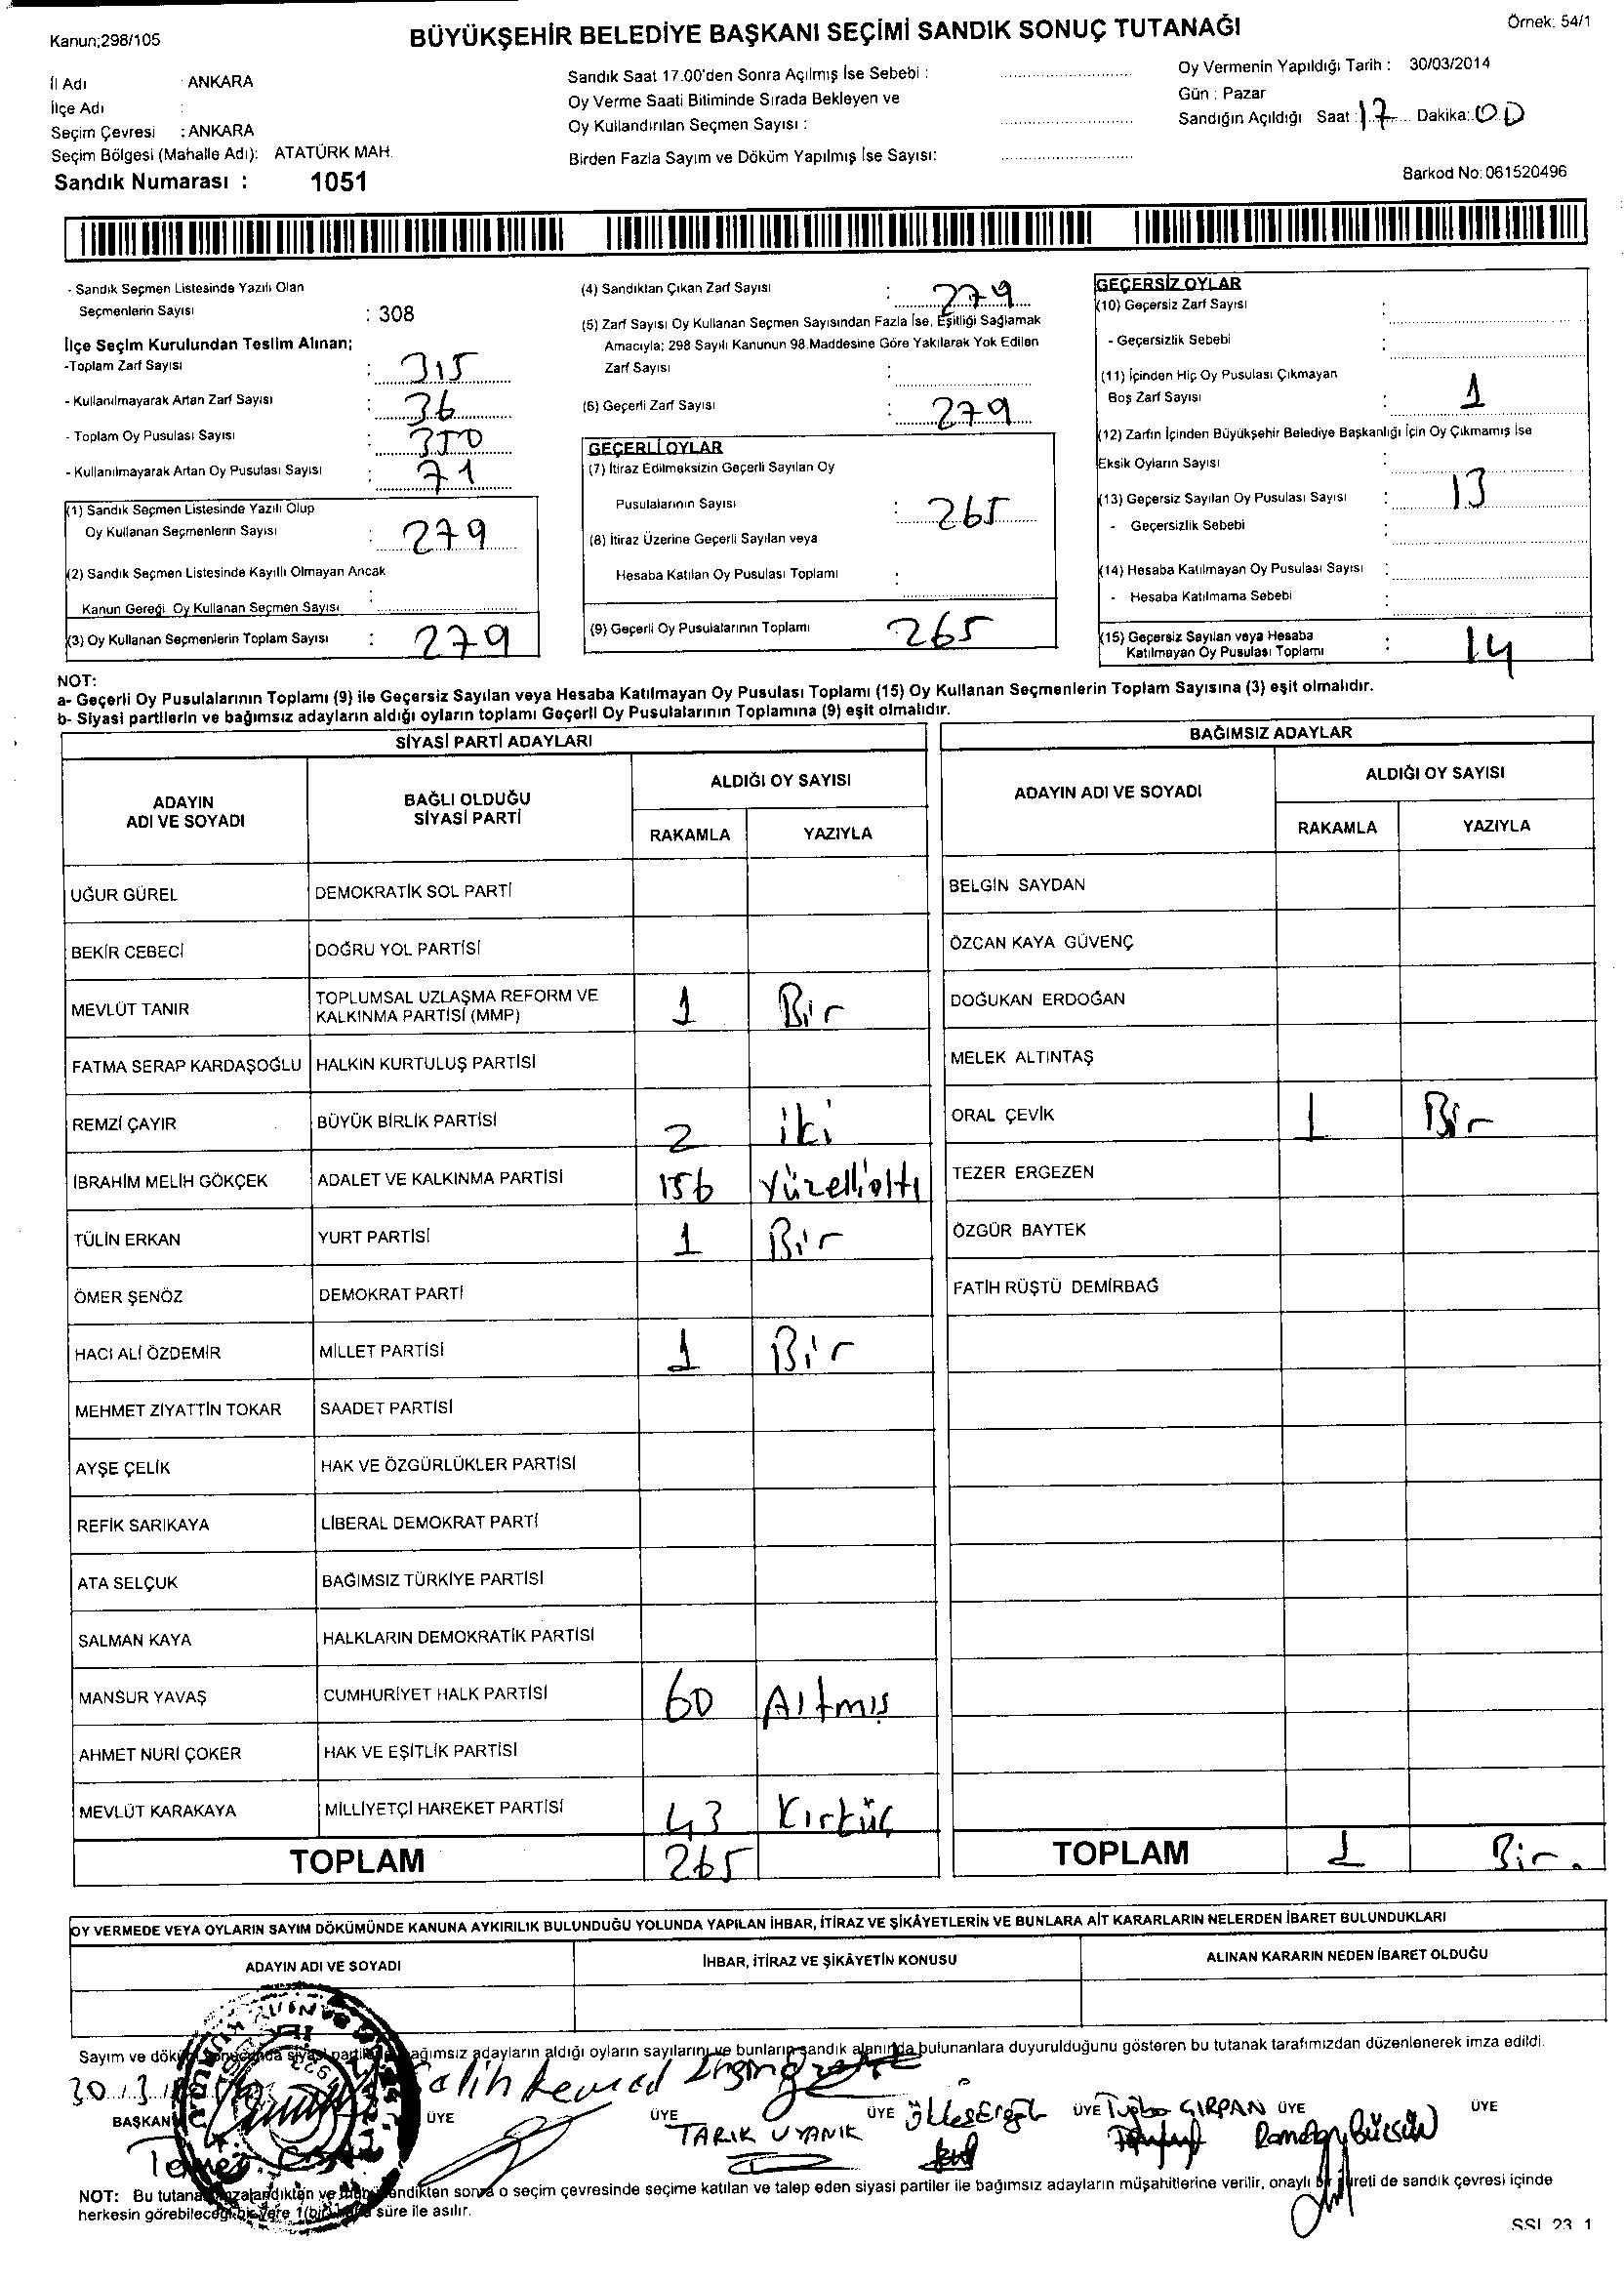 Kanun;298/105
BÜYÜKŞEHİR BELEDİYE BAŞKANI SEÇİMİ SANDIK SONUÇ TUTANAĞI
Örnek: 54/1
İl Adı : ANKARA
İlçe Adı :
Seçim Çevresi : ANKARA
Seçim Bölgesi (Mahalle Adı): ATATÜRK MAH.
Sandık Numarası : 1051
Sandık Saat 17.00'den Sonra Açılmış İse Sebebi :
Oy Verme Saati Bitiminde Sırada Bekleyen ve
Oy Kullandırılan Seçmen Sayısı :
Birden Fazla Sayım ve Döküm Yapılmış İse Sayısı:
Oy Vermenin Yapıldığı Tarih : 30/03/2014
Gün : Pazar
Sandığın Açıldığı Saat : 17 Dakika: 00
Barkod No: 061520496
- Sandık Seçmen Listesinde Yazılı Olan
Seçmenlerin Sayısı : 308
İlçe Seçim Kurulundan Teslim Alınan;
-Toplam Zarf Sayısı : 315
- Kullanılmayarak Artan Zarf Sayısı : 36
- Toplam Oy Pusulası Sayısı : 350
- Kullanılmayarak Artan Oy Pusulası Sayısı : 71
(1) Sandık Seçmen Listesinde Yazılı Olup
Oy Kullanan Seçmenlerin Sayısı : 279
(2) Sandık Seçmen Listesinde Kayıtlı Olmayan Ancak
Kanun Gereği Oy Kullanan Seçmen Sayısı :
(3) Oy Kullanan Seçmenlerin Toplam Sayısı : 279
(4) Sandıktan Çıkan Zarf Sayısı : 279
(5) Zarf Sayısı Oy Kullanan Seçmen Sayısından Fazla İse, Eşitliği Sağlamak
Amacıyla; 298 Sayılı Kanunun 98.Maddesine Göre Yakılarak Yok Edilen
Zarf Sayısı :
(6) Geçerli Zarf Sayısı : 279
GEÇERLİ OYLAR
(7) İtiraz Edilmeksizin Geçerli Sayılan Oy
Pusulalarının Sayısı : 265
(8) İtiraz Üzerine Geçerli Sayılan veya
Hesaba Katılan Oy Pusulası Toplamı :
(9) Geçerli Oy Pusulalarının Toplamı 265
GEÇERSİZ OYLAR
(10) Geçersiz Zarf Sayısı :
- Geçersizlik Sebebi :
(11) İçinden Hiç Oy Pusulası Çıkmayan
Boş Zarf Sayısı : 1
(12) Zarfın İçinden Büyükşehir Belediye Başkanlığı İçin Oy Çıkmamış İse
Eksik Oyların Sayısı :
(13) Geçersiz Sayılan Oy Pusulası Sayısı : 13
- Geçersizlik Sebebi :
(14) Hesaba Katılmayan Oy Pusulası Sayısı :
- Hesaba Katılmama Sebebi :
(15) Geçersiz Sayılan veya Hesaba
Katılmayan Oy Pusulası Toplamı : 14
NOT:
a- Geçerli Oy Pusulalarının Toplamı (9) ile Geçersiz Sayılan veya Hesaba Katılmayan Oy Pusulası Toplamı (15) Oy Kullanan Seçmenlerin Toplam Sayısına (3) eşit olmalıdır.
b- Siyasi partilerin ve bağımsız adayların aldığı oyların toplamı Geçerli Oy Pusulalarının Toplamına (9) eşit olmalıdır.
SİYASİ PARTİ ADAYLARI
ADAYIN
ADI VE SOYADI
BAĞLI OLDUĞU
SİYASİ PARTİ
ALDIĞI OY SAYISI
RAKAMLA YAZIYLA
UĞUR GÜREL DEMOKRATİK SOL PARTİ
BEKİR CEBECİ DOĞRU YOL PARTİSİ
MEVLÜT TANIR TOPLUMSAL UZLAŞMA REFORM VE
KALKINMA PARTİSİ (MMP) 1 Bir
FATMA SERAP KARDAŞOĞLU HALKIN KURTULUŞ PARTİSİ
REMZİ ÇAYIR BÜYÜK BİRLİK PARTİSİ 2 iki
İBRAHİM MELİH GÖKÇEK ADALET VE KALKINMA PARTİSİ 156 Yüzellialtı
TÜLİN ERKAN YURT PARTİSİ 1 Bir
ÖMER ŞENÖZ DEMOKRAT PARTİ
HACI ALİ ÖZDEMİR MİLLET PARTİSİ 1 Bir
MEHMET ZİYATTİN TOKAR SAADET PARTİSİ
AYŞE ÇELİK HAK VE ÖZGÜRLÜKLER PARTİSİ
REFİK SARIKAYA LİBERAL DEMOKRAT PARTİ
ATA SELÇUK BAĞIMSIZ TÜRKİYE PARTİSİ
SALMAN KAYA HALKLARIN DEMOKRATİK PARTİSİ
MANSUR YAVAŞ CUMHURİYET HALK PARTİSİ 60 Altmış
AHMET NURİ ÇOKER HAK VE EŞİTLİK PARTİSİ
MEVLÜT KARAKAYA MİLLİYETÇİ HAREKET PARTİSİ 43 Kırküç
TOPLAM 265
BAĞIMSIZ ADAYLAR
ADAYIN ADI VE SOYADI
ALDIĞI OY SAYISI
RAKAMLA YAZIYLA
BELGİN SAYDAN
ÖZCAN KAYA GÜVENÇ
DOĞUKAN ERDOĞAN
MELEK ALTINTAŞ
ORAL ÇEVİK 1 Bir
TEZER ERGEZEN
ÖZGÜR BAYTEK
FATİH RÜŞTÜ DEMİRBAĞ
TOPLAM 1 Bir.
OY VERMEDE VEYA OYLARIN SAYIM DÖKÜMÜNDE KANUNA AYKIRILIK BULUNDUĞU YOLUNDA YAPILAN İHBAR, İTİRAZ VE ŞİKÂYETLERİN VE BUNLARA AİT KARARLARIN NELERDEN İBARET BULUNDUKLARI
ADAYIN ADI VE SOYADI
İHBAR, İTİRAZ VE ŞİKÂYETİN KONUSU
ALINAN KARARIN NEDEN İBARET OLDUĞU
Sayım ve bağımsız adayların aldığı oyların sayılarını ve bunların sandık alanında bulunanlara duyurulduğunu gösteren bu tutanak tarafımızdan düzenlenerek imza edildi.
30 3
BAŞKAN ÜYE ÜYE ÜYE ÜYE ÜYE ÜYE
TARIK UYANIK Tuğba GIRPAN
NOT: Bu sonra o seçim çevresinde seçime katılan ve talep eden siyasi partiler ile bağımsız adayların müşahitlerine verilir, onaylı bir sureti de sandık çevresi içinde
herkesin süre ile asılır.
SSI 23 1